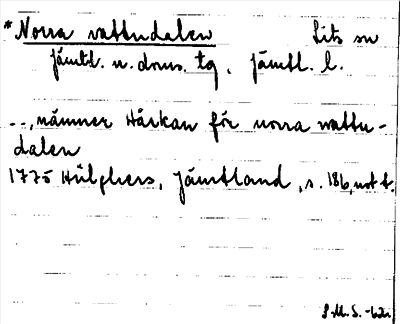 * Norra vattudalen Lits sn
Jämtl. n. doms. tg, Jämtl. l.
..., nämner Hårkan för norra vattu-
dalen
1775 Hülphers, Jämtland, s. 186, not t.